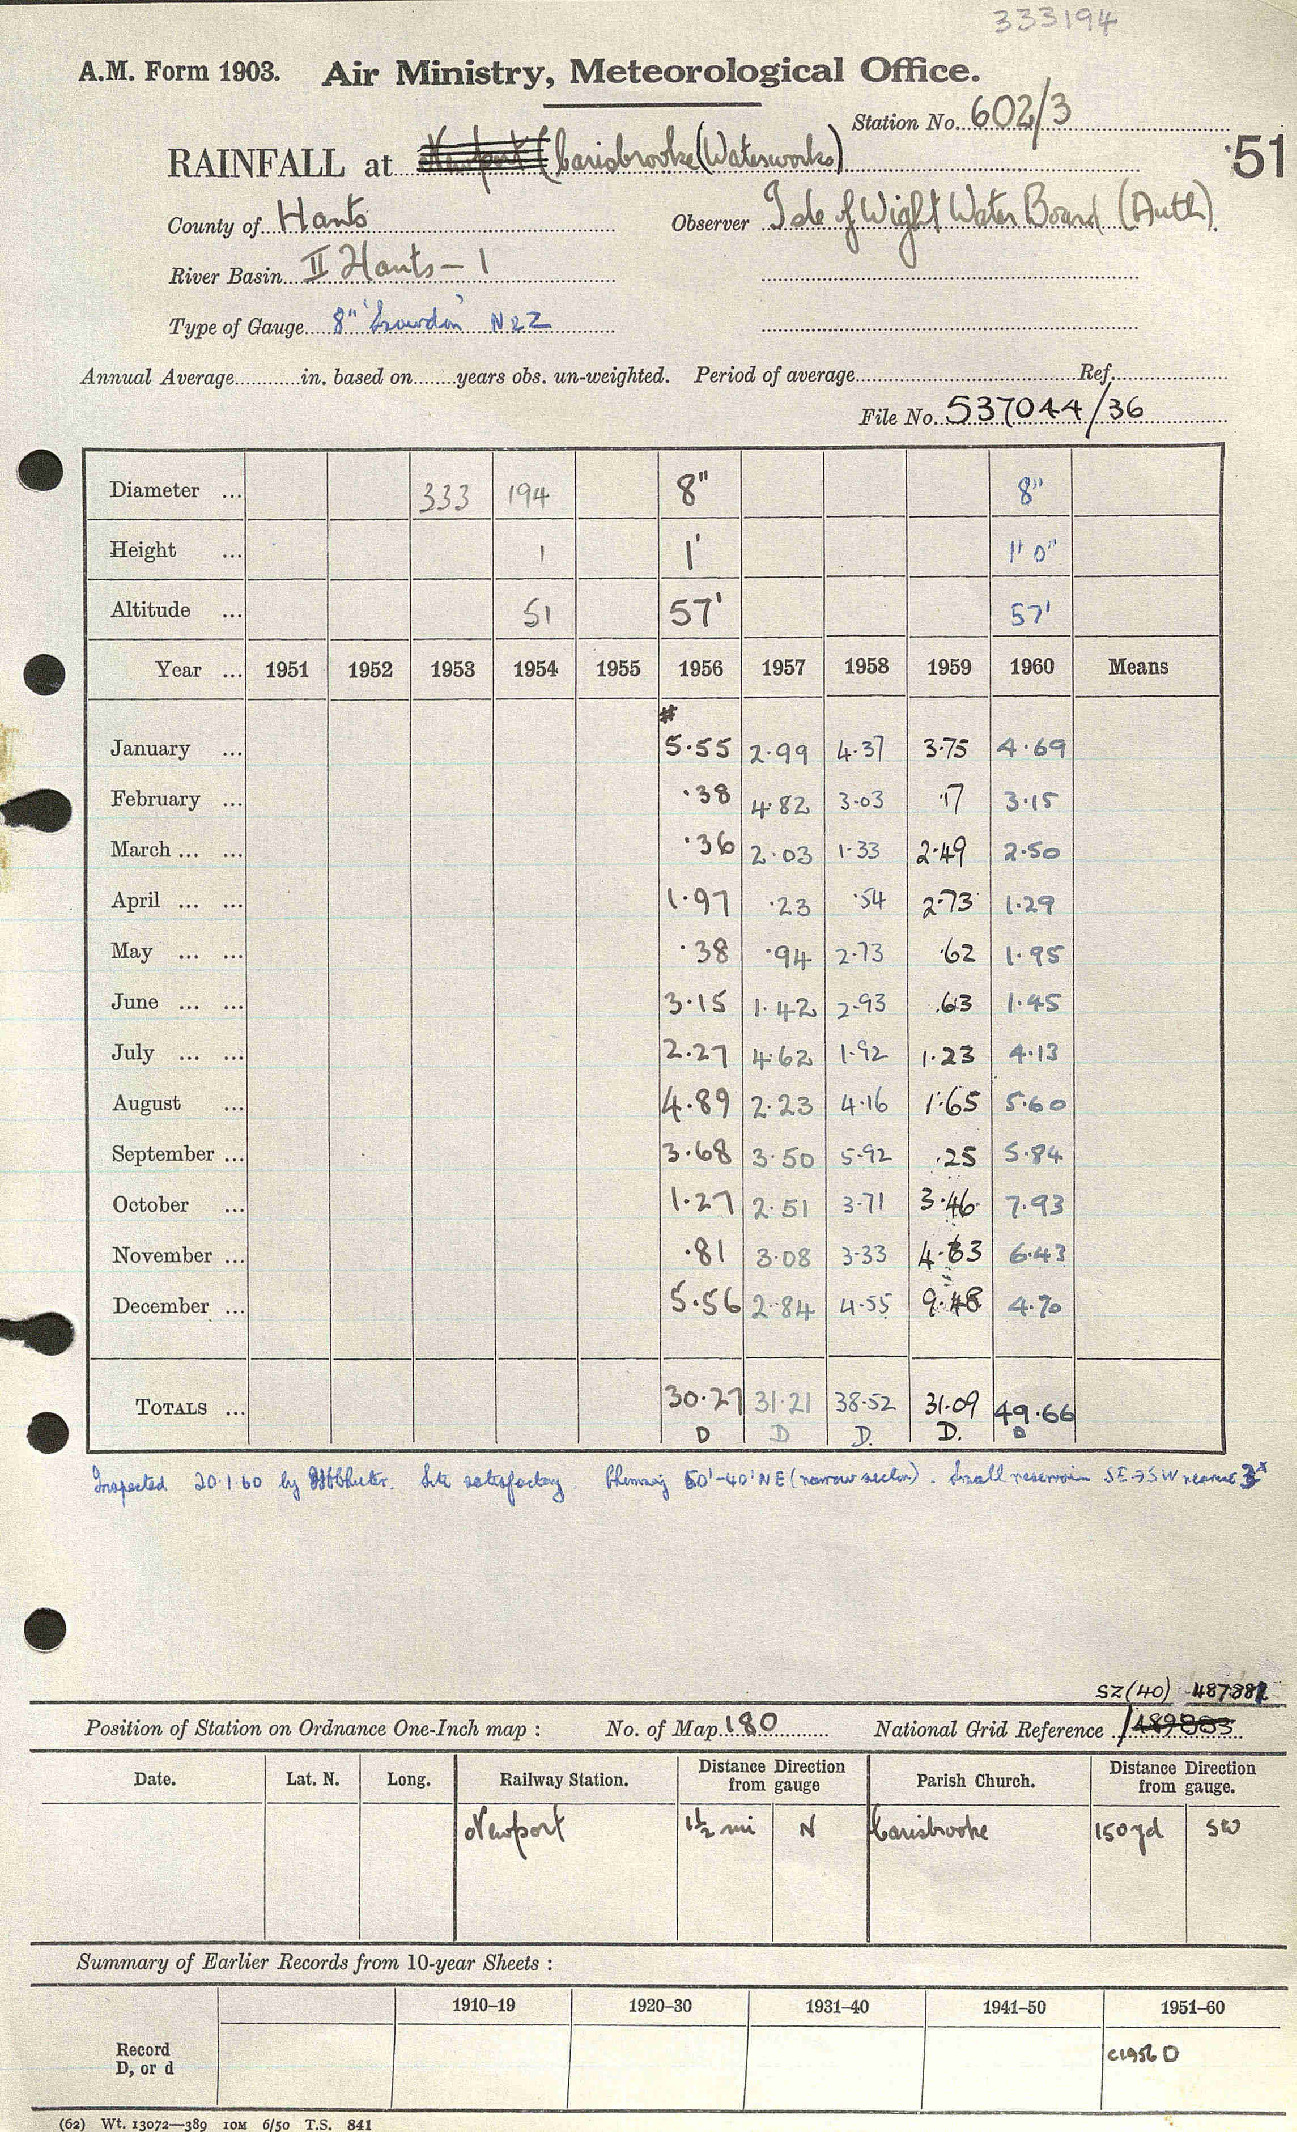 333194
A.M. Form 1903. Air Ministry, Meteorological Office.
Station No. 602/3
RAINFALL at Newport (Carisbrooke (Waterworks) '51
County of Hants Observer Isle of Wight Water Board (Auth).
River Basin II Hants – 1
Type of Gauge 8" 'Snowdon' N2Z
Annual Average in. based on years obs. un-weighted. Period of average Ref.
File No. 537044/36
Diameter ... 333 194 8" 8"
Height ... 1 1' 1' 0"
Altitude ... 51 57' 57'
Year ... 1951 1952 1953 1954 1955 1956 1957 1958 1959 1960 Means
#
January ... 5.55 2.99 4.37 3.75 4.69
February ... .38 4.82 3.03 .17 3.15
March ... ... .36 2.03 1.33 2.49 2.50
April ... ... 1.97 .23 .54 2.73 1.29
May ... ... .38 .94 2.73 .62 1.95
June ... ... 3.15 1.42 2.93 .63 1.45
July ... ... 2.27 4.62 1.92 1.23 4.13
August ... 4.89 2.23 4.16 1.65 5.60
September ... 3.68 3.50 5.92 .25 5.84
October ... 1.27 2.51 3.71 3.46 7.93
November ... .81 3.08 3.33 4.63 6.43
December ... 5.56 2.84 4.55 9.48 4.70
TOTALS ... 30.27 31.21 38.52 31.09 49.66
D D D. D. D
Inspected 20.1.60 by Site satisfactory. Chimney 60'-40' NE (narrow sector). Small reservoir SE-SSW nearest
SZ(40) 487882
Position of Station on Ordnance One-Inch map : No. of Map 180 National Grid Reference 489883
Date. Lat. N. Long. Railway Station. Distance Direction from gauge Parish Church. Distance Direction from gauge.
Newport 1½ mi N Carisbrooke 150 yd SW
Summary of Earlier Records from 10-year Sheets :
1910–19 1920–30 1931–40 1941–50 1951–60
Record
D, or d
c1956 D
(62) Wt. 13072—389 10M 6/50 T.S. 841